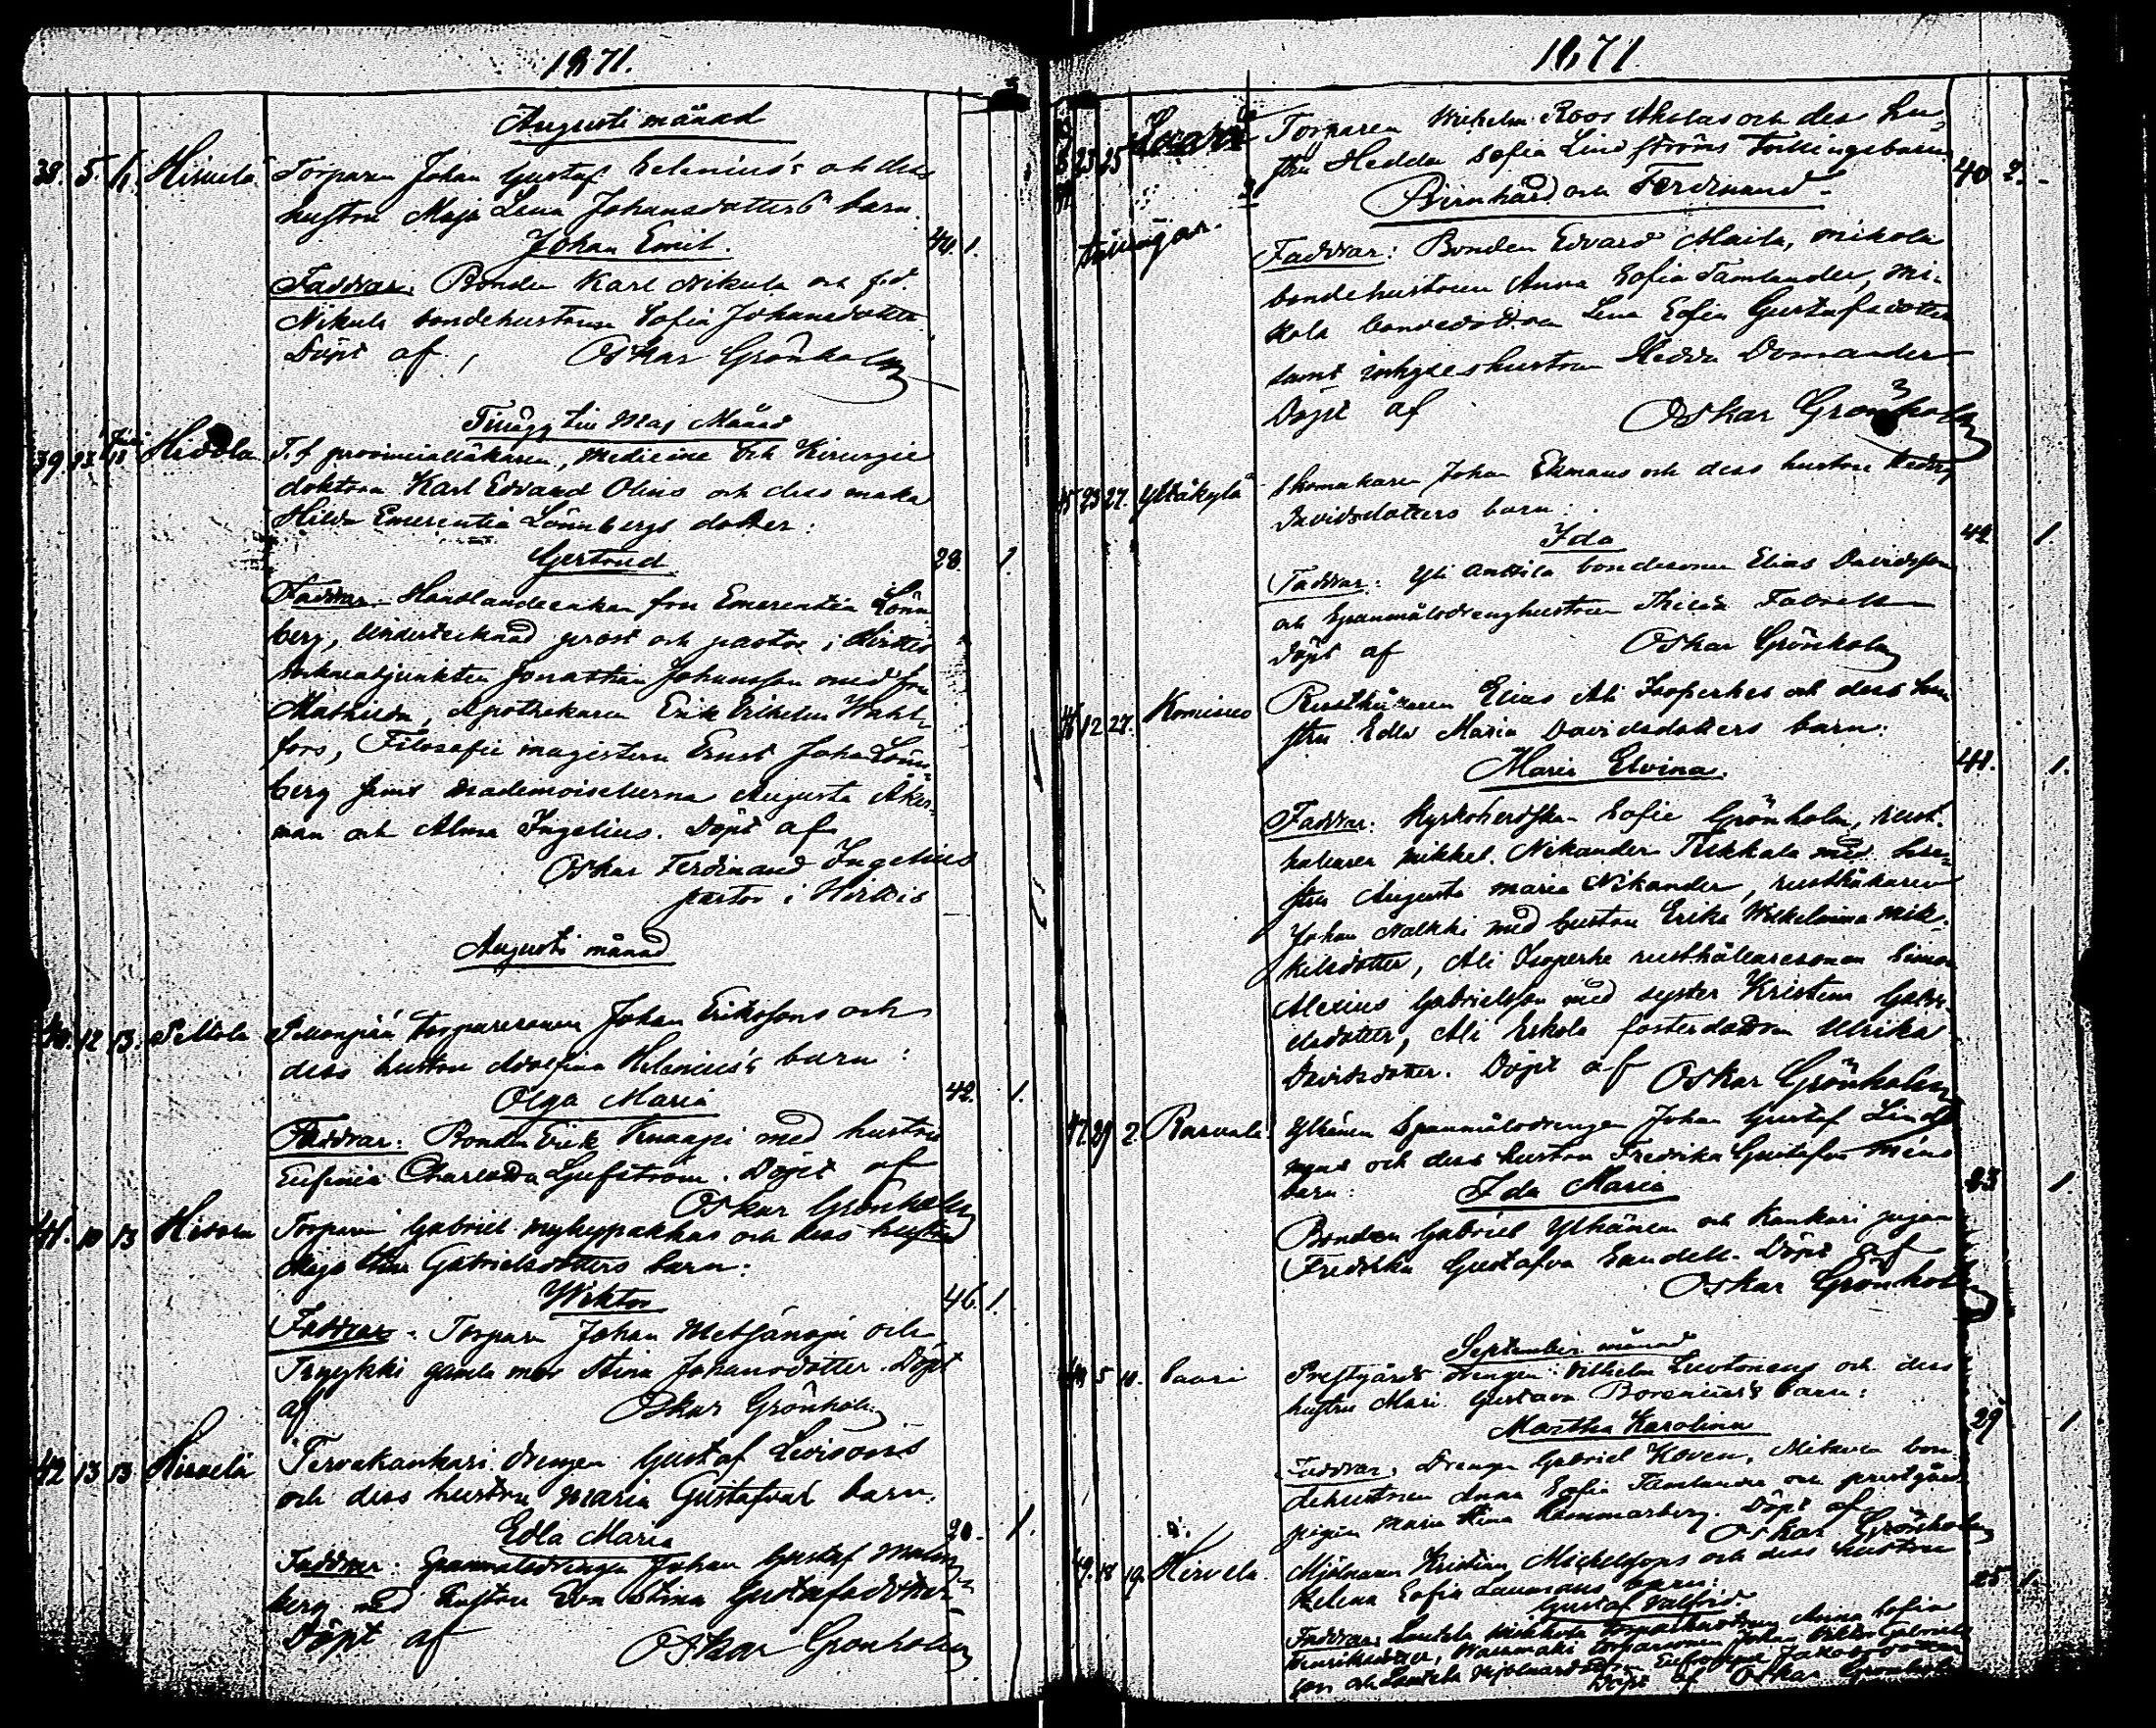 1871.
Augusti månad
38. 5. 6. Hirvelä. Torparen Johan Gustaf Helenius's och dess
hustru Maja Lena Johansdotters barn.
Johan Emil. 40. 1.
Faddrar: Bonden Karl Nikula och f.d.
Nikula bondehustrun Sofia Johansdotter.
Döpt af, Oskar Grönholm
Maj Månad
39. 18 T.f. provincialläkaren, Medicine och Kirurgie
doktorn Karl Edvard Olius och dess maka
Hilda Emerentia Lönnbergs dotter:
Gertrud 28. 1.
Faddrar: Handlandeenkan fru Emerentia Lönn-
berg, Undertecknad prost och pastor i
Jonathan Johansson med fru
Mathilda, Apothekaren Erik Vilhelm Wahl-
fors, Filosofie magistern Ernst Joha Lönn-
berg samt mademoisellerna Augusta Åker-
man och Alma Ingelius. Döpt af
Oskar Ferdinand Ingelius
pastor i
Augusti månad
40. 12 13. torparesonen Johan Erikssons och
dess hustru Adolfina Helenius's barn:
Olga Maria 42. 1.
Faddrar: Bonden Erik Knaapi med hustru
Eufemia Charlotta Ljufström. Döpt af
Oskar Grönholm
41. 10 13 Torparen Gabriel Myhyrpakkas och dess hustru
Maja Gabrielsdotters barn:
Wiktor 46. 1.
Faddrar: Torparen Johan Metsänoja och
gamla mor Stina Johansdotter. Döpt
af Oskar Grönholm
42 13 13 Hirvelä Tervakankari drengen Gustaf Levisons
och dess hustru Maria Gustafvas barn.
Edla Maria 20. 1.
Faddrar: Spannmålsdrengen Johan Gustaf Malm-
berg med hustru Eva Stina Gustafsdotter
Döpt af Oskar Grönholm
1871
23 25 Torparen Wilhelm Roos Aholas och dess hu-
stru Hedda Sofia Lindströms Tvillingsbarn
Bernhard och Ferdinand 40 2.
tvillingar.
Faddrar: Bonden Edvard Maila, Mikola
bondehustrun Anna Sofia Tamlander, Mi-
kola bondedottren Lena Sofia Gustafsdotter
samt inhyseshustrun Hedda Domander
Döpt af Oskar Grönholm
45 23 27. Yttäkylä Skomakaren Johan Ekmans och dess hustru Hedvig
Davidsdotters barn:
Ida 42 1
Faddrar: Yli Anttila bondesonen Elias Davidsson
och Spannmålsdrenghustrun
Döpt af Oskar Grönholm
46 12 27. Rusthållaren Elias Ali Isoperhes och dess hu-
stru Edla Maria Davidsdotters barn:
Maria Elvina. 41. 1.
Faddrar: Kyrkoherdskan Sofie Grönholm, rust-
hållaren Mikkel Nikander Tukkala med hu-
stru Augusta Maria Nikander, rusthållaren
Johan Nalkki med hustru Erika Wilhelmina Mik-
kelsdotter, Ali Isoperhe rusthållaresonen Simon
Alexius Gabrielsson med syster Kristina Gabri-
elsdotter, Ali Eskola fosterdottren Ulrika
Davidsdotter. Döpt af Oskar Grönholm
47. 29 2. Rasvala Ylhänen Spannmålsdrengen Johan Gustaf Lind-
och dess hustru Fredrika Gustafva
barn: Ida Maria 23 1.
Bonden Gabriel Ylhänen och Kankari pigan
Fredrika Gustafva Sandell. Döpt af
Oskar Grönholm
September månad
48 5 10. Saari Prestgårds drengen Vilhelm och dess
hustru Mari Gustava Borenius's barn:
Martha Karolina 29 1
Faddrar: Drengen Gabriel Koven, bon-
dehustrun Anna Sofia Tamlander och prestgårds
pigan Maria Stina Hammarberg. Döpt af
Oskar Grönholm
49. 18 19. Hirvelä. Mjölnaren Kristian Michelssons och dess hustru
Helena Sofia barn:
Gustaf Valfrid. 25 1.
Faddrar: Anna Sofia
Henriksdotter, torparesonen Johan Viktor Gabriels-
son och Jakobsdotter
Döpt af Oskar Grönholm